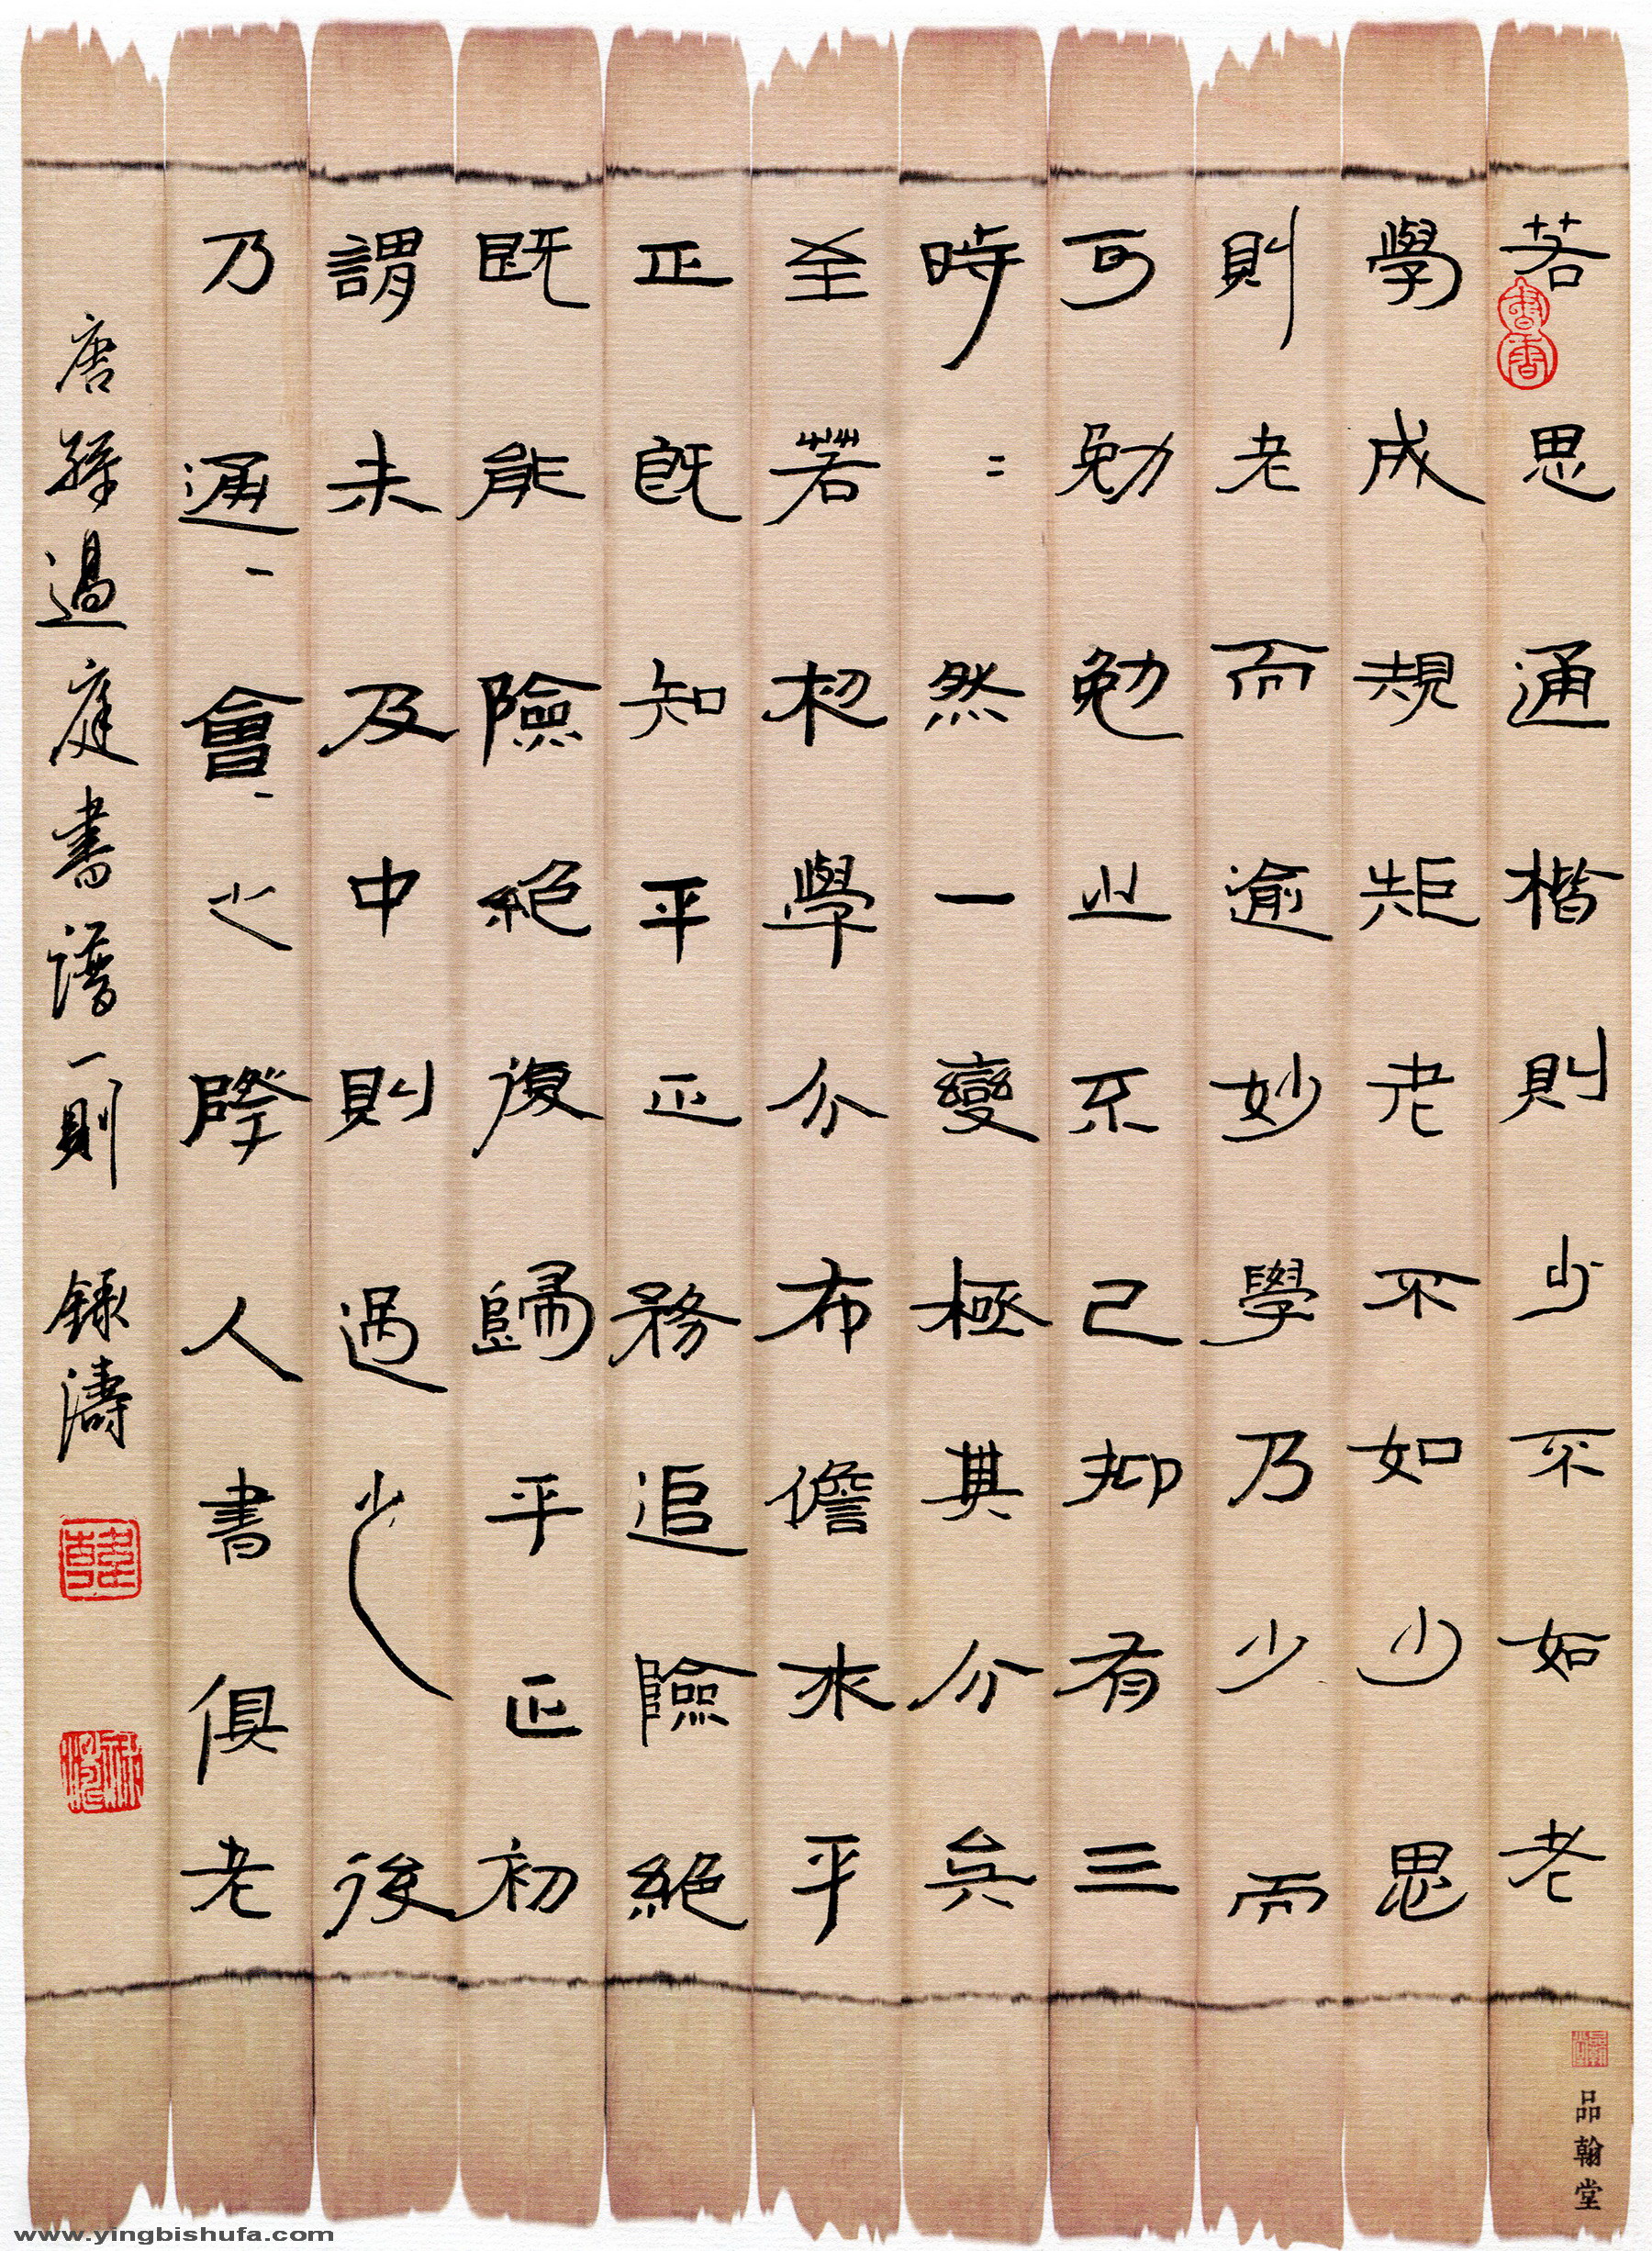 若思通楷則少不如老
學成規矩老不如少思
則老而逾妙學乃少而
可勉勉之不已抑有三
時=然一變極其分矣
至若初學分布儋求平
正既知平正務追險絕
既能險絕復歸平正初
謂未及中則過之後
乃通、會、之際人書俱老
唐孫過庭書譜一則 錄濤
書香
品翰堂
www.yingbishufa.com